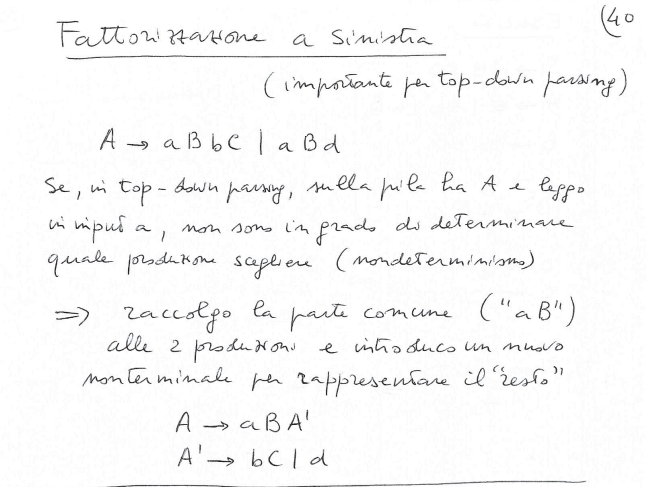 (40
Fattorizzazione a sinistra
(importante per top-down parsing)
A → aBbC | aBd
Se, in top-down parsing, sulla pila ha A e leggo
in input a, non sono in grado di determinare
quale produzione scegliere (nondeterminismo)
⇒ raccolgo la parte comune ("aB")
alle 2 produzioni e introduco un nuovo
nonterminale per rappresentare il "resto"
A → aBA'
A' → bC | d